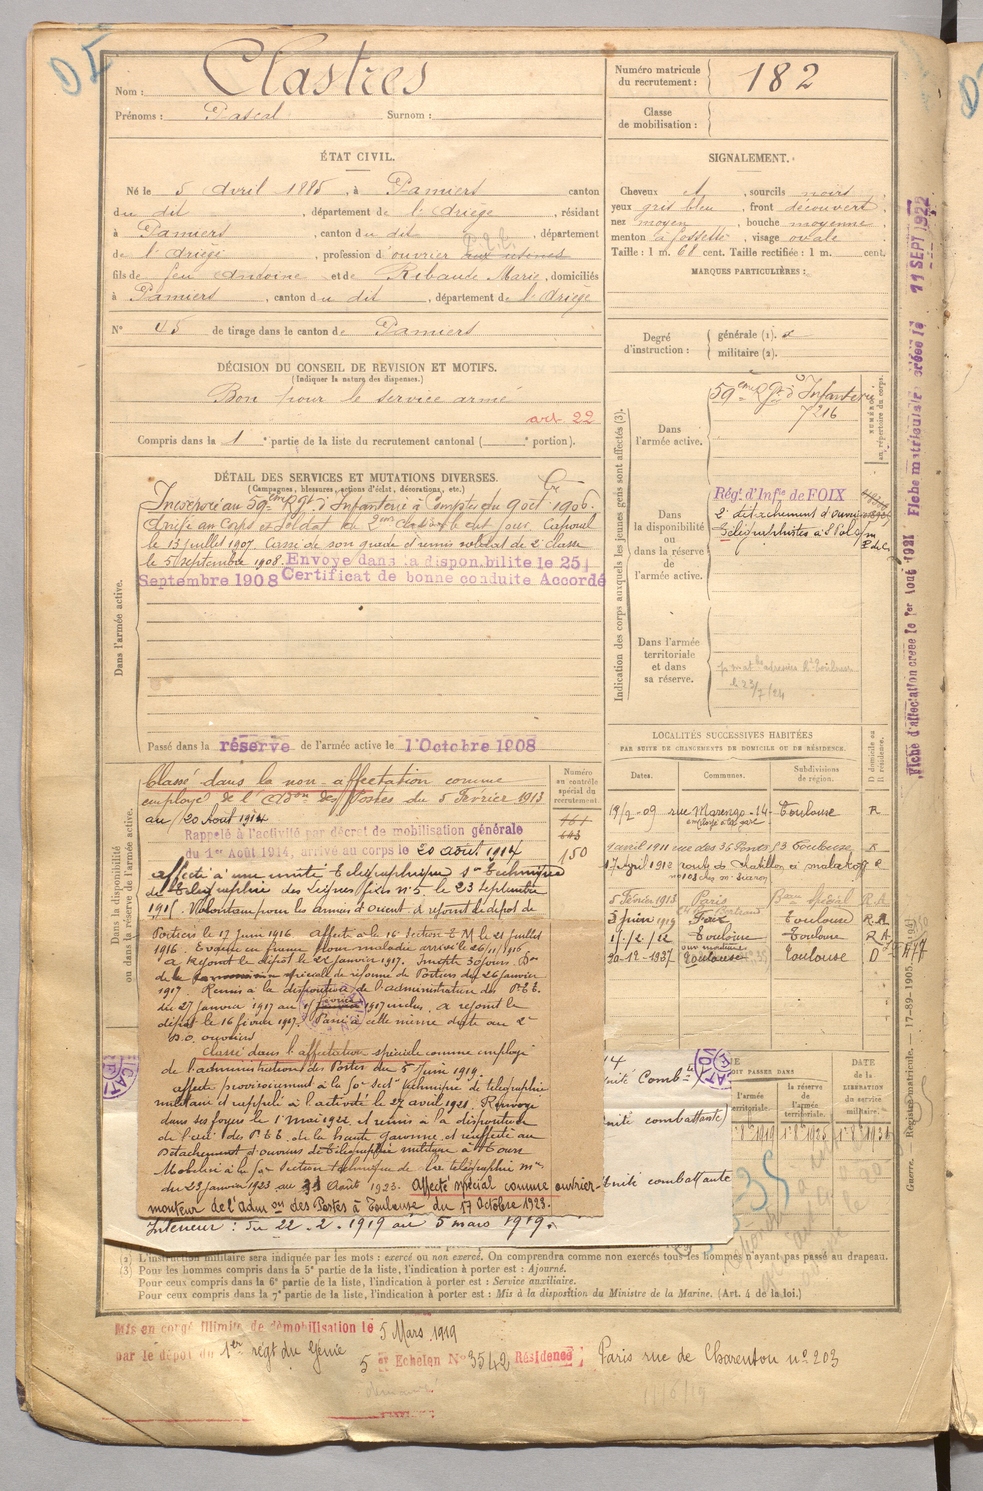 Nom : Clastres
Prénoms : Pascal Surnom :
Numéro matricule du recrutement : 182
Classe de mobilisation :
ÉTAT CIVIL.
Né le 5 Avril 1885, à Pamiers canton
du dit, département de l'Ariège, résidant
à Pamiers, canton du dit, département
de l'Ariège, profession d'ouvrier
fils de feu Antoine et de Ribaude Marie, domiciliés
à Pamiers, canton du dit, département de l'Ariège
N° 45 de tirage dans le canton de Pamiers
SIGNALEMENT.
Cheveux et, sourcils noirs
yeux gris bleu, front découvert
nez moyen, bouche moyenne
menton à fossette, visage ovale
Taille : 1 m. 68 cent. Taille rectifiée : 1 m. cent.
MARQUES PARTICULIÈRES :
Degré d'instruction : générale (1).
militaire (2).
DÉCISION DU CONSEIL DE REVISION ET MOTIFS.
(Indiquer la nature des dispenses.)
Bon pour le service armé
art 22
Compris dans la 1e partie de la liste du recrutement cantonal ( e portion).
DÉTAIL DES SERVICES ET MUTATIONS DIVERSES.
(Campagnes, blessures, actions d'éclat, décorations, etc.)
Dans l'armée active.
Incorporé au 59ème Rgt d'Infanterie à compter du 9 oct 1906.
Arrivé au Corps et Soldat de 2me classe le dit jour. Caporal
le 13 juillet 1907. Cassé de son grade et remis soldat de 2e classe
le 5 septembre 1908. Envoyé dans la disponibilité le 25
Septembre 1908 Certificat de bonne conduite Accordé
Passé dans la réserve de l'armée active le 1 Octobre 1908
Indication des corps auxquels les jeunes gens sont affectés (3).
Dans l'armée active.
59ème Rgt d'Infanterie
7216
NUMÉROS au répertoire du corps.
Dans la disponibilité ou dans la réserve de l'armée active.
Rég.t d'Inf.ie de FOIX
2e détachement d'ouvriers
Télégraphistes à St Pol s/m
P. de C.
Dans l'armée territoriale et dans sa réserve.
le 23/7/24
LOCALITÉS SUCCESSIVES HABITÉES
PAR SUITE DE CHANGEMENTS DE DOMICILE OU DE RÉSIDENCE.
Dates. Communes. Subdivisions de région. D domicile ou R résidence.
19/2-09 rue Marengo-14- Toulouse R
1 avril 1911 rue des 36 Ponts 73 Toulouse R
17 Avril 1912 route de Chatillon à malakoff R
5 Février 1913 Paris Bau Spécial R.A
3 juin 1919 Foix Toulouse R.A
1/./2/22 Toulouse Toulouse R A
20-12-1937 Toulouse Toulouse D
Dans la disponibilité ou dans la réserve de l'armée active.
Numéro au contrôle spécial du recrutement
150
Classé dans la non-affectation comme
employé de l'Adon des Postes du 5 Février 1913
au 20 Août 1914
Rappelé à l'activité par décret de mobilisation générale
du 1er Août 1914, arrivé au corps le 20 août 1914
affecté à une unité Télégraphique son technique
de Télégraphie des lignes fides n° 5 le 23 Septembre
1915. Volontaire pour les armées d'orient. A rejoint le dépôt de
Poitiers le 17 juin 1916 Affecté à le 16e Section T M le 21 juillet
1916. Evacué en france pour maladie arrivé le 26/11/1916
a rejoint le dépôt le 22 janvier 1917. Inapte 30 jours. Don
de la spéciale de réforme de Poitiers du 26 janvier
1917 Remis à la disposition de l'administration des P.T.T.
du 27 janvier 1917 au 15 février 1917 inclus, a rejoint le
dépôt le 16 février 1917. Passé à cette même date au 2e
D.O. ouvriers
Classé dans l'affectation spéciale comme employé
de l'administration des Postes du 5 Juin 1919.
affecté provisoirement à la son technique de télégraphie
militaire et rappelé à l'activité le 27 avril 1921. Renvoyé
dans ses foyers le 1 mai 1922 et remis à la disposition
de l'eur des P.T.T. de la haute garonne et réaffecté au
Détachement d'ouvriers de Télégraphie militaire à Tours
Mobilisé à la Section technique de la télégraphie mre
du 23 janvier 1923 au 31 Août 1923. Affecté spécial comme ouvrier-
monteur de l'Admon des Postes à Toulouse du 17 Octobre 1923.
Intérieur : du 22-2-1919 au 5 mars 1919.
unité Combte
unité combattante
unité combattante
l'armée territoriale.
la réserve de l'armée territoriale.
DATE de la LIBÉRATION du service militaire.
(2) L'instruction militaire sera indiquée par les mots : exercé ou non exercé. On comprendra comme non exercés tous les hommes n'ayant pas passé au drapeau.
(3) Pour les hommes compris dans la 5e partie de la liste, l'indication à porter est : Ajourné.
Pour ceux compris dans la 6e partie de la liste, l'indication à porter est : Service auxiliaire.
Pour ceux compris dans la 7e partie de la liste, l'indication à porter est : Mis à la disposition du Ministre de la Marine. (Art. 4 de la loi.)
Mis en congé illimité de démobilisation le 5 Mars 1919
par le dépôt du 1er régt du Génie
5e Echelon N° 3542 Résidence : Paris rue de Charenton n° 203
Fiche d'affectation créée le 1er Aout 1921 Fiche matriculaire créée le 11 SEPT 1922
Guerre. Registre matricule. — 17-89-1905.